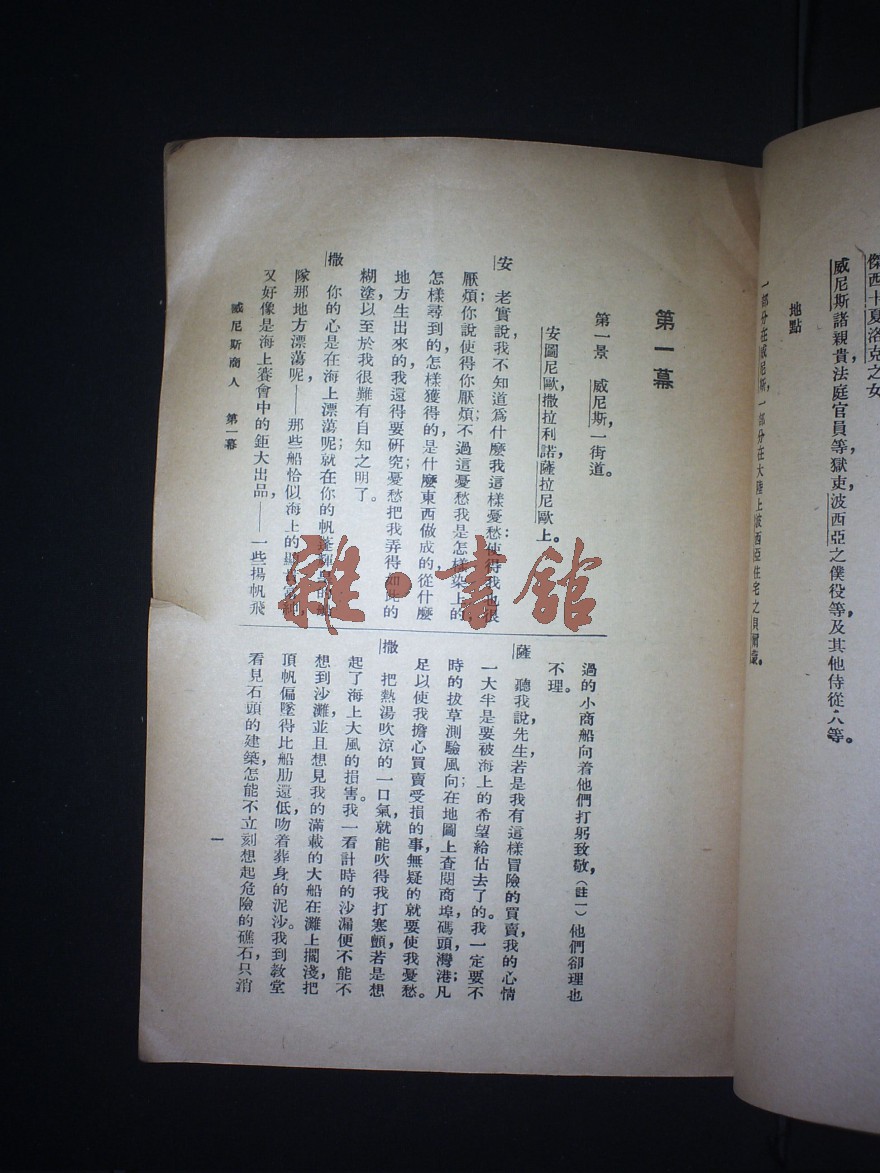 傑西卡夏洛克之女
威尼斯諸親貴,法庭官員等,獄吏,波西亞之僕役等,及其他侍從人等。
地點
一部分在威尼斯,一部分在大陸上波西亞住宅之貝爾蒙。
第一幕
第一景 威尼斯,一街道。
安圖尼歐,撒拉利諾,薩拉尼歐上。
安 老實說,我不知道爲什麼我這樣憂愁:使得我也很
厭煩;你說使得你厭煩;不過這憂愁我是怎樣染上的,
怎樣尋到的,怎樣獲得的,是什麼東西做成的,從什麼
地方生出來的,我還得要研究;憂愁把我弄得如此的
糊塗,以至於我很難有自知之明了。
撒 你的心是在海上漂蕩呢;就在你的帆篷輝皇的船
隊那地方漂蕩呢,——那些船恰似海上的顯貴富紳,
又好像是海上賽會中的鉅大出品,——一些揚帆飛
過的小商船向着他們打躬致敬,(註一)他們卻理也
不理。
薩 聽我說,先生,若是我有這樣冒險的買賣,我的心情
一大半是要被海上的希望給佔去了的。我一定要不
時的拔草測驗風向;在地圖上查閱商埠,碼頭,灣港;凡
足以使我擔心買賣受損的事,無疑的就要使我憂愁。
撒 把熱湯吹涼的一口氣,就能吹得我打寒顫,若是想
起了海上大風的損害。我一看計時的沙漏,便不能不
想到沙灘,並且想見我的滿載的大船在灘上擱淺,把
頂帆偏墜得比船肋還低,吻着葬身的泥沙。我到教堂
看見石頭的建築,怎能不立刻想起危險的礁石,只消
威尼斯商人 第一幕
一
雜·書館